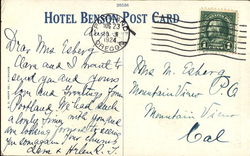 39586
HOTEL BENSON POST CARD
PORTLAND
AUG 23
1924
OREGON
Dear Mrs Esberg
Clara and I want to
send you and yours
love and Greetings from
Portland. We had such
a lovely time with you and
are looking forward to seeing
you some again
Clara & Helen
Mrs M. Esberg
Mountain View P.O
Mountain View
Cal